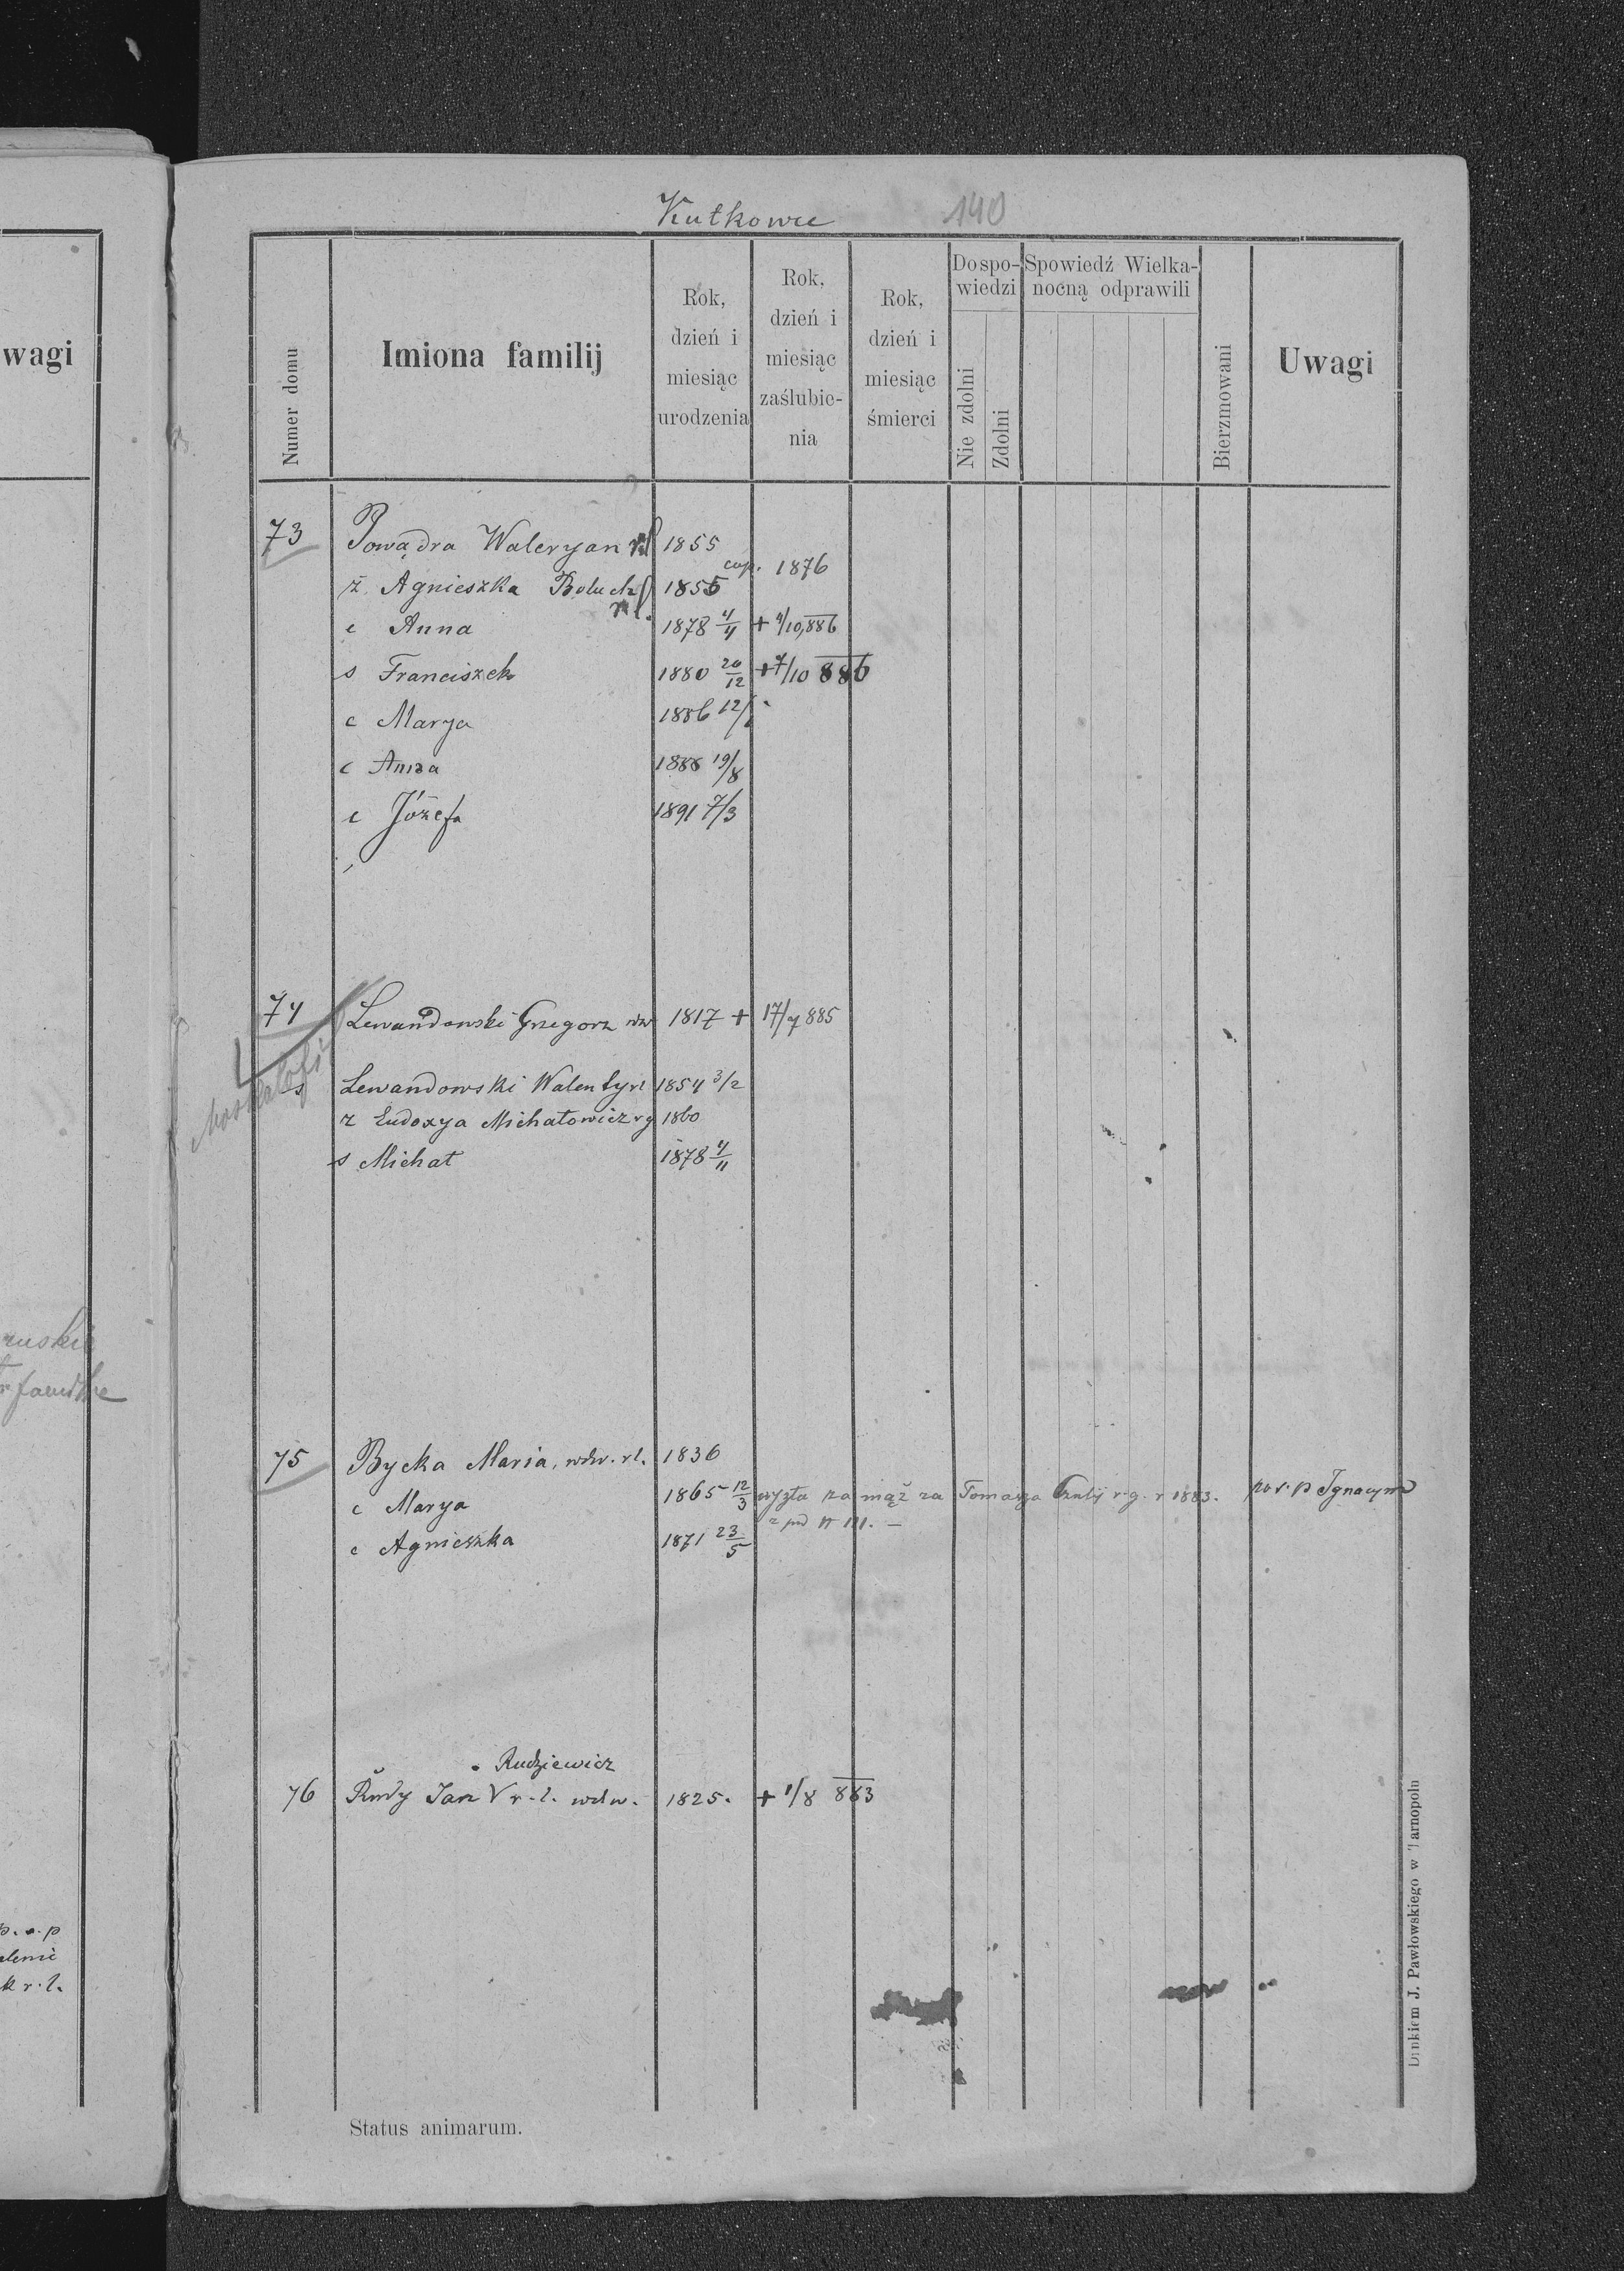 wagi
p. . p
k r. l.
Kutkowce 140
Numer domu
Imiona familij
Rok, dzień i miesiąc urodzenia
Rok, dzień i miesiąc zaślubienia
Rok, dzień i miesiąc śmierci
Dospowiedzi
Nie zdolni
Zdolni
Spowiedź Wielkanocną odprawili
Bierzmowani
Uwagi
73 Powądra Waleryan rl 1855
cop. 1876
ż Agnieszka Boluch rl. 1855
c Anna 1878 4/4 + 4/10,886
s Franciszek 1880 20/12 + 7/10 886
c Marya 1886 12/
c Anna 1888 19/8
c Józefa 1891 7/3
74 Lewandowski Grzegorz wdw 1817 + 17/7 885
s Lewandowski Walenty rl 1854 3/2
ż Eudoxya Michałowicz rg 1860
s Michał 1878 4/11
75 Bycka Maria, wdw. rl. 1836
c Marya 1865 12/3 wyszła za mąż za Tomasza r.g. r 1883. Ignacym
z pod N 111. —
c Agnieszka 1871 23/5
Rudziewicz
76 Rudy Jan V r. l. wdw. 1825. + 1/8 883
Status animarum.
Drukiem J. Pawłowskiego w Tarnopolu